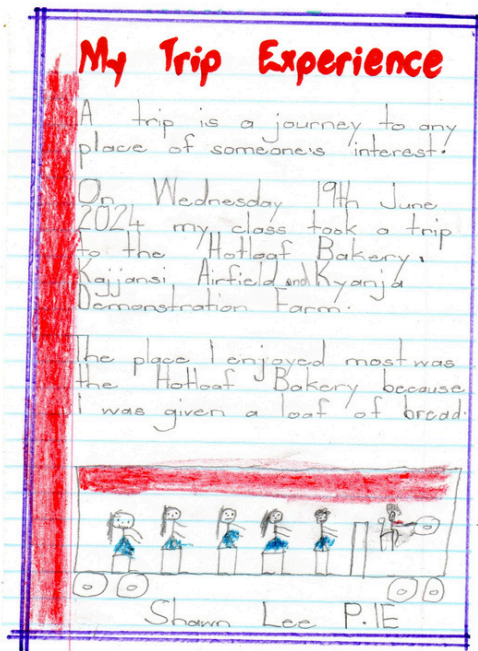 My Trip Experience
A trip is a journey to any
place of someone's interest.
On Wednesday 19th June
2024 my class took a trip
to the Hotloaf Bakery,
Kajjansi Airfield and Kyanja
Demonstration Farm.
The place I enjoyed most was
the Hotloaf Bakery because
I was given a loaf of bread.
Shawn Lee P.1E